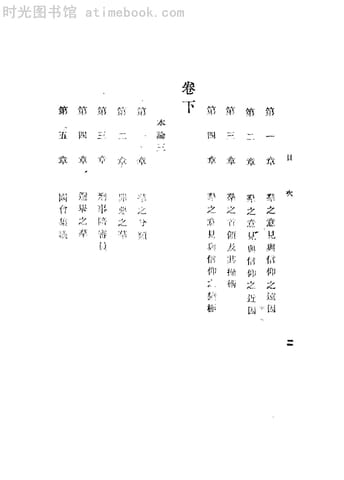 时光图书馆 - atimebook.com
目次
二
第一章 羣之意見與信仰之遠因
第二章 羣之意見與信仰之近因
第三章 羣之首領及其操柄
第四章 羣之意見與信仰之範極
卷下
本論三
第一章 羣之分類
第二章 罪惡之羣
第三章 刑事陪審員
第四章 選舉之羣
第五章 國會集議